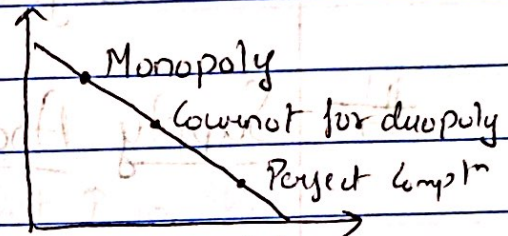 Monopoly
Cournot for duopoly
Perfect Compt^n